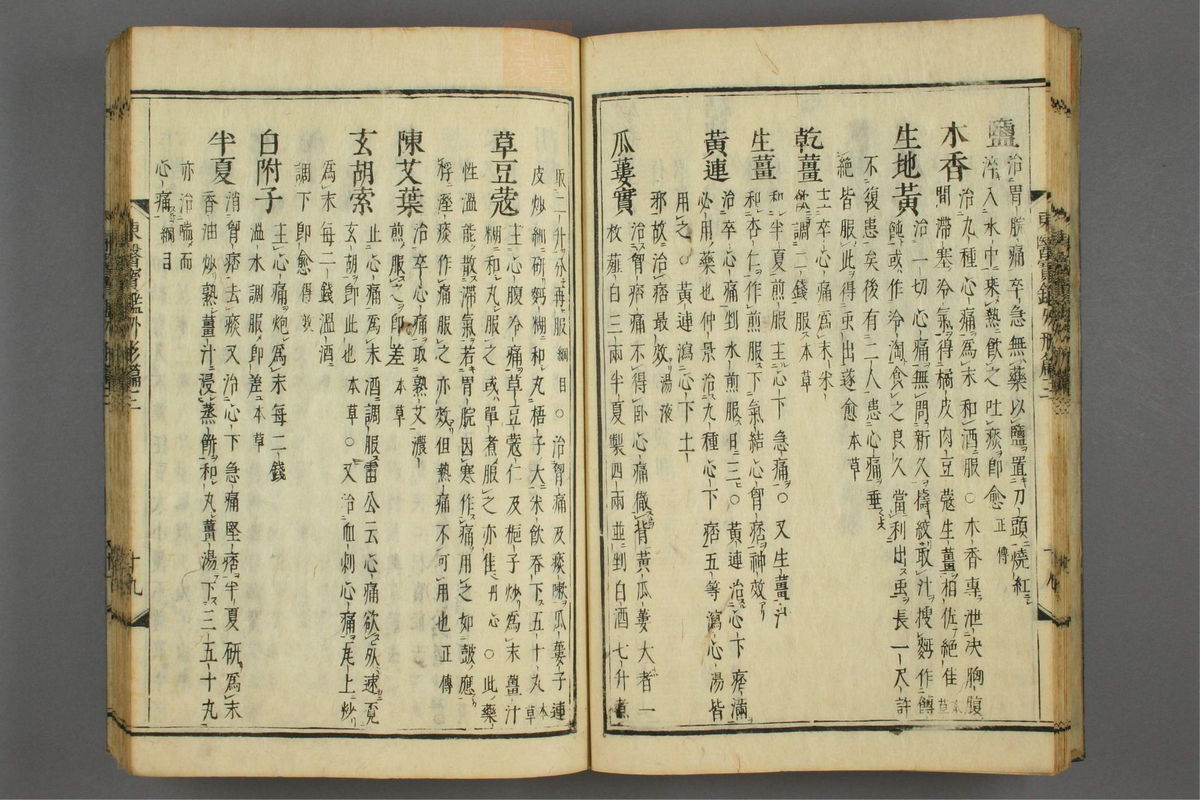 鹽 治胃脘痛卒急無藥以鹽置刀頭燒紅
淬入水中乘熱飲之吐痰卽愈 正傳
木香 治九種心痛爲末和酒服○木香專泄決胸腹
間滯塞冷氣得橘皮肉豆蔻生薑相佐絶佳 本草
生地黃 治一切心痛無問新久擣絞取汁搜麪作餺
飥或作冷淘食之良久當利出虫長一尺許
不復患矣後有二人患心痛垂
絶皆服此得虫出遂愈 本草
乾薑 主卒心痛爲末米
飲調二錢服 本草
生薑 和半夏煎服主心下急痛○又生薑汁
和杏仁作煎服下氣結心胸痞神效
黃連 治卒心痛剉水煎服日三○黃連治心下痞滿
必用藥也仲景治九種心下痞五等瀉心湯皆
用之○黃連瀉心下土
邪故治痞最效 湯液
瓜蔞實 治胸痞不得臥心痛徹背黃瓜蔞大者一
枚薤白三兩半夏製四兩並剉白酒七升煮
取二升分再服 綱目○治胸痛及痰嗽瓜蔞子連
皮炒細硏麪糊和丸梧子大米飲吞下五十丸 本草
草豆蔻 主心腹冷痛草豆蔻仁及梔子炒爲末薑汁
糊和丸服之或單煮服之亦佳 丹心○此藥
性溫能散滯氣若胃脘因寒作痛用之如鼓應
桴溼痰作痛服之亦效但熱痛不可用也 正傳
陳艾葉 治卒心痛取熟艾濃
煎服之卽差 本草
玄胡索 止心痛爲末酒調服雷公云心痛欲死速覓
玄胡卽此也 本草○又治血刺心痛尾上炒
爲末每二錢溫酒
調下卽愈 得效
白附子 主心痛炮爲末每二錢
溫水調服卽差 本草
半夏 消胸痞去痰又治心下急痛堅痞半夏硏爲末
香油炒熟薑汁浸蒸餅和丸薑湯下三五十丸
亦治喘而
心痛 綱目
東醫寶鑑外形篇三
十九